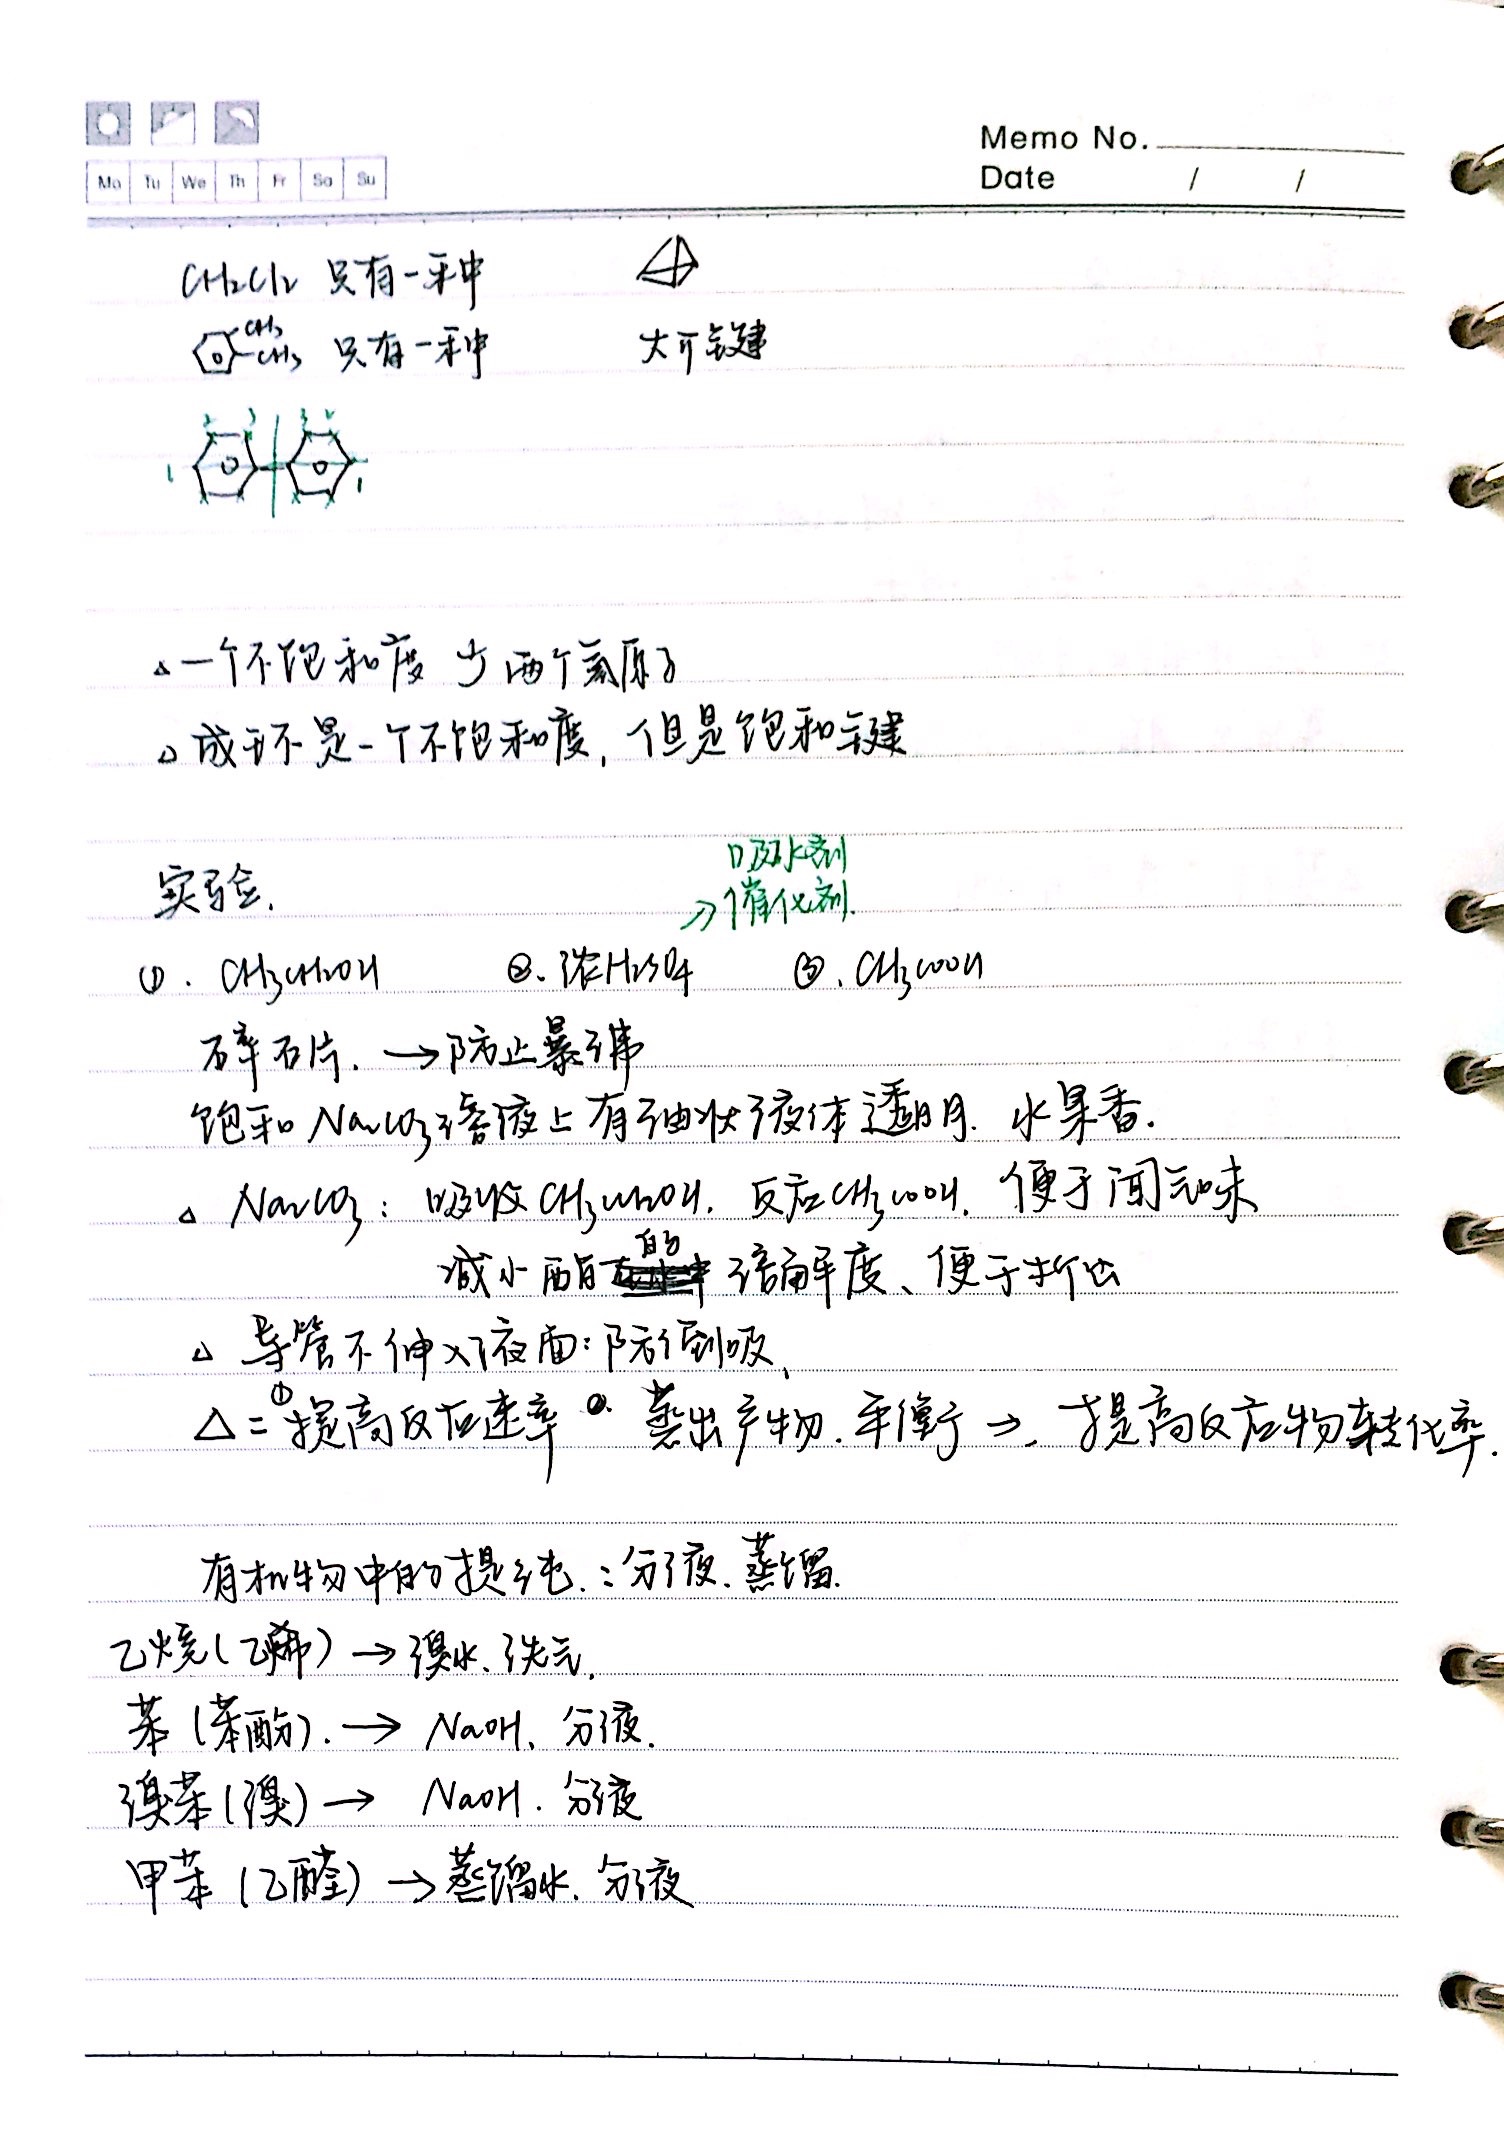 Memo No.
Mo Tu We Th Fr Sa Su
Date / /
CH2Cl2 只有一种
CH3
CH3 只有一种 大π键
2 3 3 2
1 1
△一个不饱和度 少两个氢原子
△成环是一个不饱和度,但是饱和键
吸水剂
实验. →催化剂.
①. CH3CH2OH ②.浓H2SO4 ③.CH3COOH
碎石片. →防止暴沸
饱和Na2CO3溶液上有油状液体透明. 水果香.
△ Na2CO3: 吸收CH3CH2OH. 反应CH3COOH. 便于闻气味
减小酯的溶解度、便于析出
△ 导管不伸入液面:防倒吸,
△=①提高反应速率 ②.蒸出产物.平衡于→. 提高反应物转化率.
有机物中的提纯.:分液.蒸馏.
乙烷(乙烯)→溴水、洗气.
苯(苯酚).→ NaOH、分液.
溴苯(溴)→ NaOH. 分液
甲苯(乙醛)→蒸馏水.分液